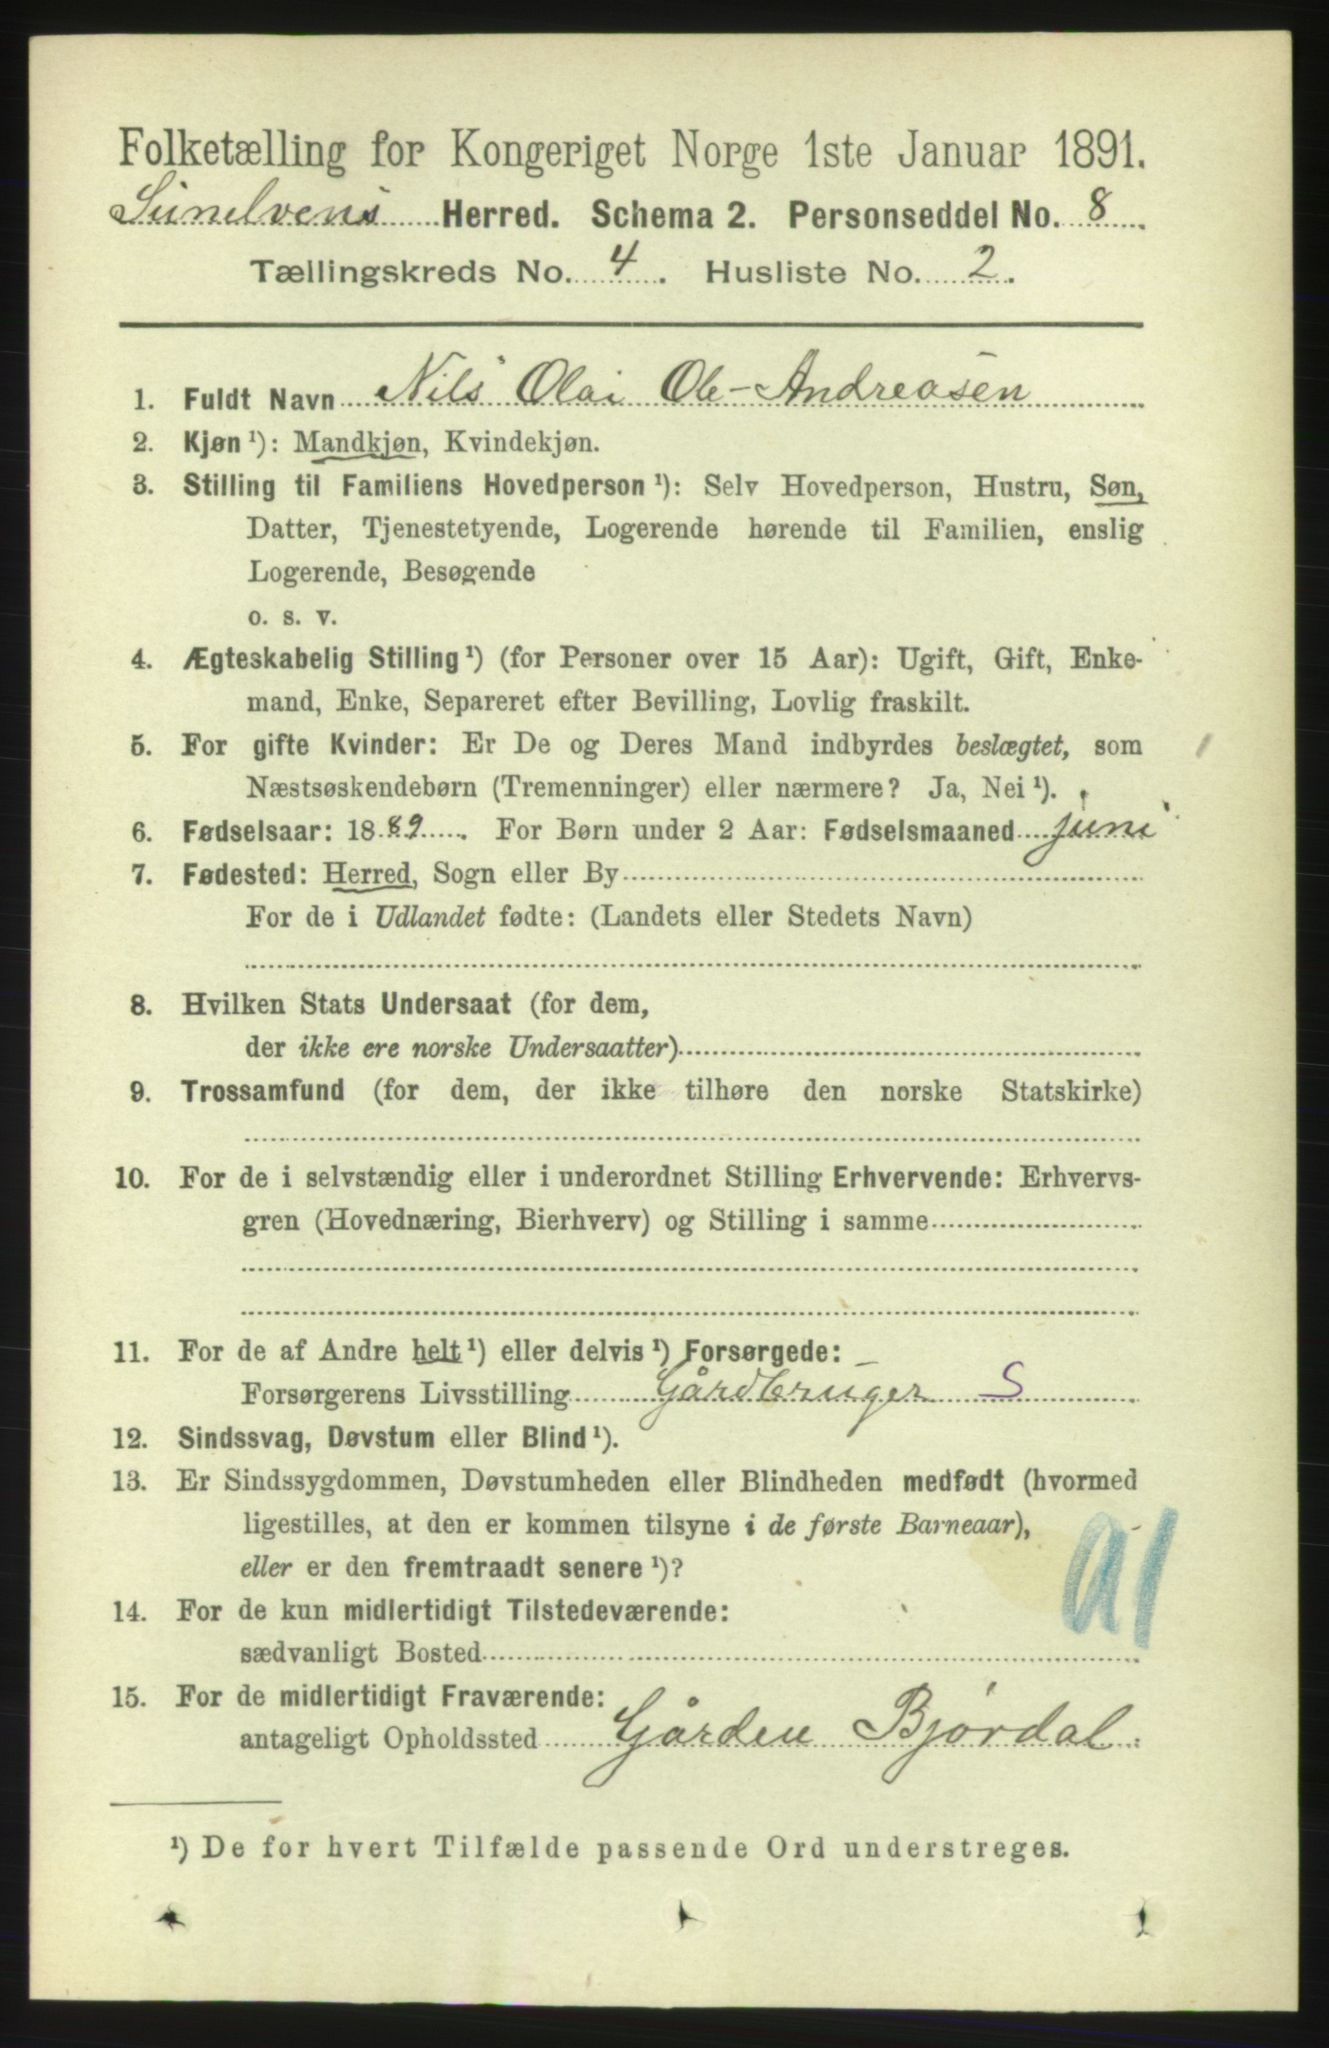 Folketælling for Kongeriget Norge 1ste Januar 1891.
Sunelvens Herred. Schema 2. Personseddel No. 8
Tællingskreds No. 4. Husliste No. 2.
1. Fuldt Navn Nils Olai Ole-Andreasen
2. Kjøn ¹): Mandkjøn, Kvindekjøn.
3. Stilling til Familiens Hovedperson ¹): Selv Hovedperson, Hustru, Søn,
Datter, Tjenestetyende, Logerende hørende til Familien, enslig
Logerende, Besøgende
o. s. v.
4. Ægteskabelig Stilling ¹) (for Personer over 15 Aar): Ugift, Gift, Enke-
mand, Enke, Separeret efter Bevilling, Lovlig fraskilt.
5. For gifte Kvinder: Er De og Deres Mand indbyrdes beslægtet, som
Næstsøskendebørn (Tremenninger) eller nærmere? Ja, Nei ¹).
6. Fødselsaar: 1889. For Børn under 2 Aar: Fødselsmaaned juni
7. Fødested: Herred, Sogn eller By
For de i Udlandet fødte: (Landets eller Stedets Navn)
8. Hvilken Stats Undersaat (for dem,
der ikke ere norske Undersaatter)
9. Trossamfund (for dem, der ikke tilhøre den norske Statskirke)
10. For de i selvstændig eller i underordnet Stilling Erhvervende: Erhvervs-
gren (Hovednæring, Bierhverv) og Stilling i samme
11. For de af Andre helt ¹) eller delvis ¹) Forsørgede:
Forsørgerens Livsstilling Gårdbruger S
12. Sindssvag, Døvstum eller Blind ¹).
13. Er Sindssygdommen, Døvstumheden eller Blindheden medfødt (hvormed
ligestilles, at den er kommen tilsyne i de første Barneaar),
eller er den fremtraadt senere ¹)?
91
14. For de kun midlertidigt Tilstedeværende:
sædvanligt Bosted
15. For de midlertidigt Fraværende:
antageligt Opholdssted Gården Bjørdal
¹) De for hvert Tilfælde passende Ord understreges.